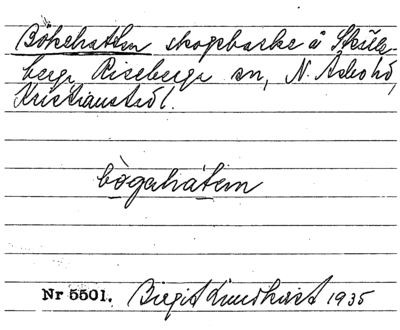 Bökehatten skogsbacke å Skäls-
berga, Riseberga sn, N. Åsbo hd,
Kristianst. l.
bögahatem
Nr 5501. Birgit Lundkvist 1935